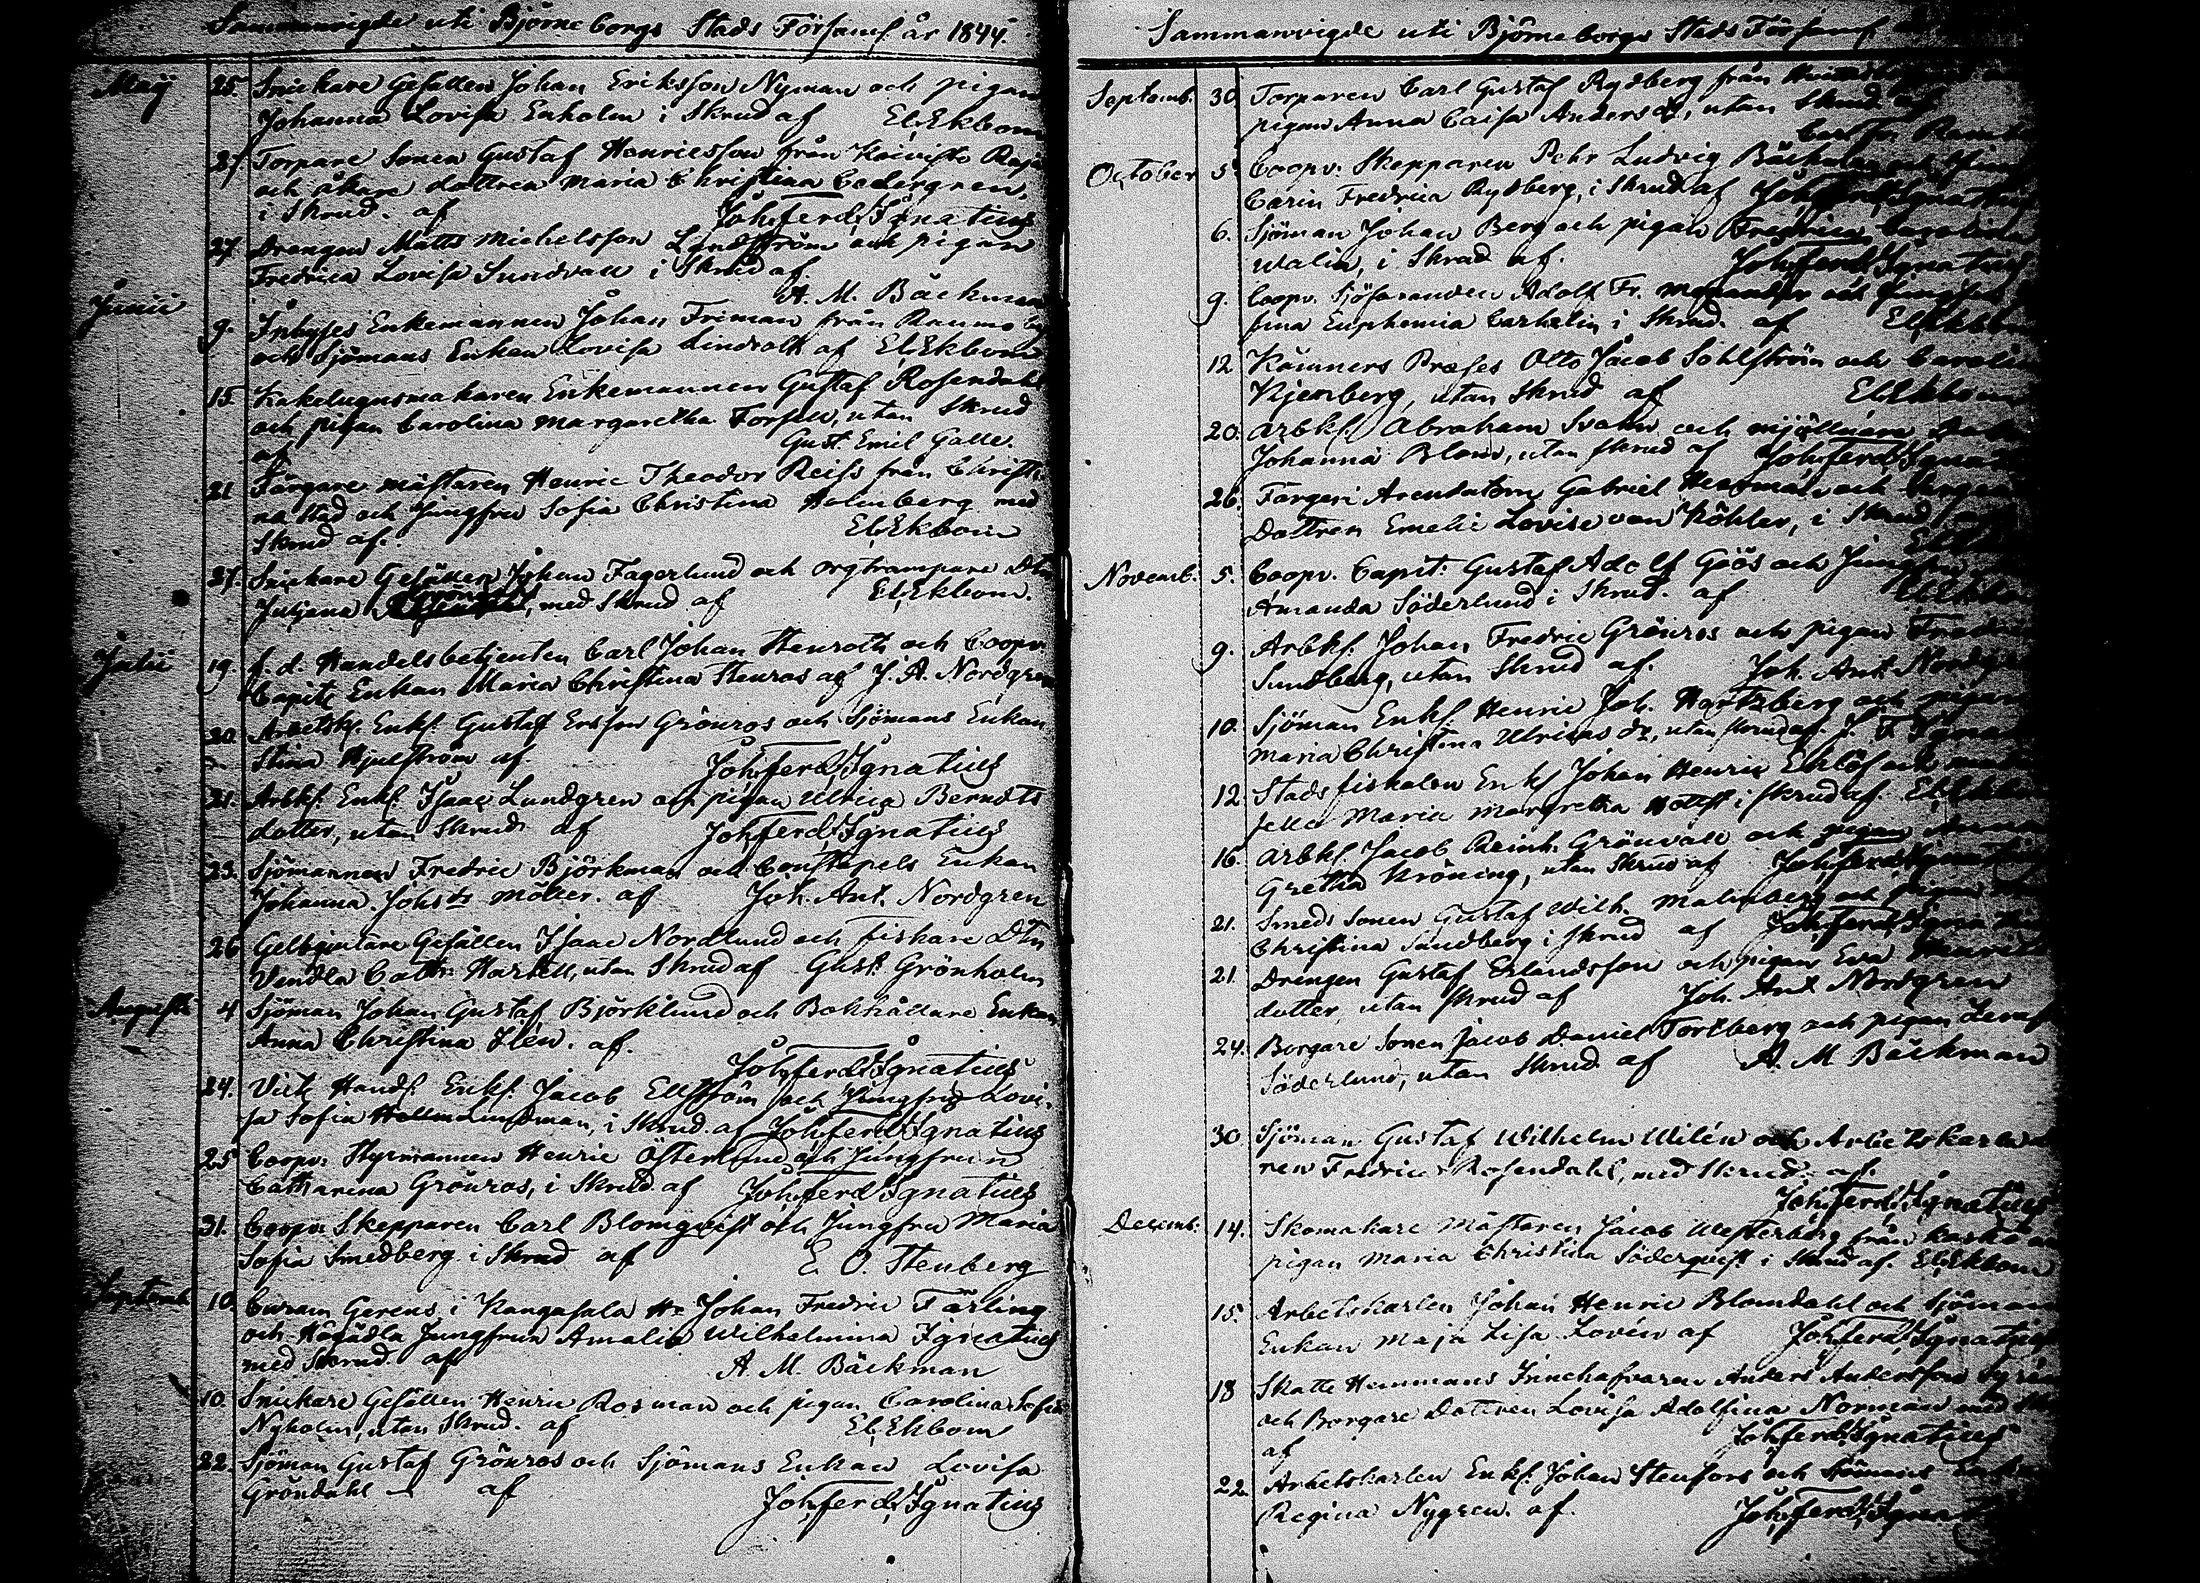 Sammanvigde uti Björneborgs Stads Församl år 1844.
Maij 25. Snickare Gesällen Johan Eriksson Nyman och pigan
Johanna Lovisa Enholm i Skrud af El. Ekbom
27. Torpare Sonen Gustaf Henricsson från Koivisto
och åkare dottren Maria Christina Cedergren,
i Skrud. af Joh. Ferd. Ignatius
27 Drengen Matts Michelsson Landström och pigan
Fredrica Lovisa Sundvall i Skrud af.
A. M. Bäckman
Junii 9. Inhyses Enkemannen Johan Friman från Raumo
och Sjömans Enkan Lovisa Lindroth af El. Ekbom
15. Kakelugnsmakaren Enkemannen Gustaf Rosendahl
och pigan Carolina Margaretha Forsell, utan Skrud
af Gust. Emil Galle.
21 Färgare mästaren Henric Theodor Reiss från Christi-
na Stad och Jungfru Sofia Christina Holmberg med
Skrud af. El. Ekbom
27. Snickare Gesällen Johan Fagerlund och orgtrampare Dtn
Juljana med Skrud af El. Ekbom.
Julii 19. f. d. Handelsbetjenten Carl Johan Stenroth och Coopv.
Capit. Enkan Maria Christina Stenros af J. A. Nordgren
20. Arbetsk. Enkl. Gustaf Ersson Grönros och Sjömans Enkan
Stina Hjulström af. Joh. Ferd. Ignatius
21. Arbk. Enkl. Isaac Lundgren och pigan Ulrica Berndts
dotter, utan Skrud af Joh. Ferd. Ignatius
23. Sjömannen Fredric Björkman och Constapels Enkan
Johanna Johsdr Möller. af Joh. Ant. Nordgren
26 Gelbgjutare Gesällen Isaac Nordlund och fiskare Dtn
Vendla Cath: Hartell, utan Skrud af Gust. Grönholm
Augusti 4 Sjöman Johan Gustaf Björklund och Bokhållare Enkan
Anna Christina Ilén. af.
Joh. Ferd. Ignatius
24. Vict. Handl. Enkl. Jacob Ellström och Jungfru Lovi-
sa Sofia i Skrud. af Joh. Ferd. Ignatius
25 Coopv. Styrmannen Henric Österlund och Jungfrun
Catharina Grönros, i Skrud. af Joh. Ferd. Ignatius
31. Coopv. Skepparen Carl Blomqvist och Jungfru Maria
Sofia Smedberg. i Skrud af E. O. Stenberg
Septemb. 10. Curam Gerens i Kangasala Hr Johan Fredric Färling
och Högädla Jungfrun Amalia Wilhelmina Ignatius
med Skrud. af A. M. Bäckman
10. Snickare Gesällen Henric Rosman och pigan Carolina Sofia
Nyholm, utan Skrud. af El. Ekbom
22. Sjöman Gustaf Grönros och Sjömans Enkan Lovisa
Gröndahl af Joh. Ferd. Ignatius
Sammanvigde uti Björneborgs Stads Församl
Septemb. 30. Torparen Carl Gustaf Rydberg från
pigan Anna Caisa Andersdr, utan Skrud af
October 5. Coopv. Skepparen Pehr Ludvig Bäckman och
Carin Fredrica Rydberg, i Skrud af Joh. Ferd. Ignatius
6. Sjöman Johan Berg och pigan Fredrica Carolina
Walin, i Skrud af. Joh. Ferd. Ignatius
9. Coopv. Sjöfaranden Adolf Fr. Menander och Jungfru
fina Euphemia Carhelin i Skrud. af El. Ekbom
12 Kämners Præses Otto Jacob Sohlström och Carolina
Kjemberg, utan Skrud af El. Ekbom
20. Arbkl. Abraham Svahn och mjölnare
Johanna Blom, utan skrud af Joh. Ferd. Ignatius
26. Färgeri Arendatorn Gabriel och
Dottren Emelie Lovise von Köhler, i Skrud
Novemb. 5. Coopv. Capit: Gustaf Adolf Göös och Jungfru
Amanda Söderlund i Skrud. af El. Ekbom
9. Arbkl. Johan Fredric Grönros och pigan Fredrica
Sundberg, utan Skrud af. Joh. Ant. Nordgren
10. Sjöman Enkl. Henric Joh. Hartzberg och pigan
Maria Christina Ulricasdr, utan skrud af. J. F. Ignatius
12. Stadsfiskalen Enkl Johan Henric Eklöf och
Maria Margretha i skrud af. El. Ekbom
16. Arbkl. Jacob Reinh. Grönvall och pigan
Gretha Kröning, utan Skrud af Joh. Ferd. Ignatius
21. Smeds Sonen Gustaf Wilh. Malmberg och pigan
Christina Sundberg i skrud af Joh. Ferd. Ignatius
21. Drengen Gustaf Erlandsson och pigan Eva
dotter, utan skrud af Joh. Ant Nordgren
24. Borgare Sonen Jacob Daniel Tortberg och pigan
Söderlund, utan Skrud af A. M. Bäckman
30. Sjöman Gustaf Wilhelm Wilén och Arbetskarls
Fredrica Rosendahl, med Skrud. af.
Joh. Ferd. Ignatius
Decemb. 14. Skomakare Mästaren Jacob Westerberg från
pigan Maria Christina Söderqvist i Skrud af. El. Ekbom
15. Arbetskarlen Johan Henric Blomdahl och Sjömans
Enkan Maja Lisa Lovén af Joh. Ferd. Ignatius
18 Skatte Hemmans Innehafvaren Anders Andersson
och Borgare Dottren Lovisa Adolfina Norman med
af Joh. Ferd. Ignatius
22. Arbetskarlen Enkl. Johan Stenfors och Sjömans
Regina Nygren. af. Joh. Ferd. Ignatius